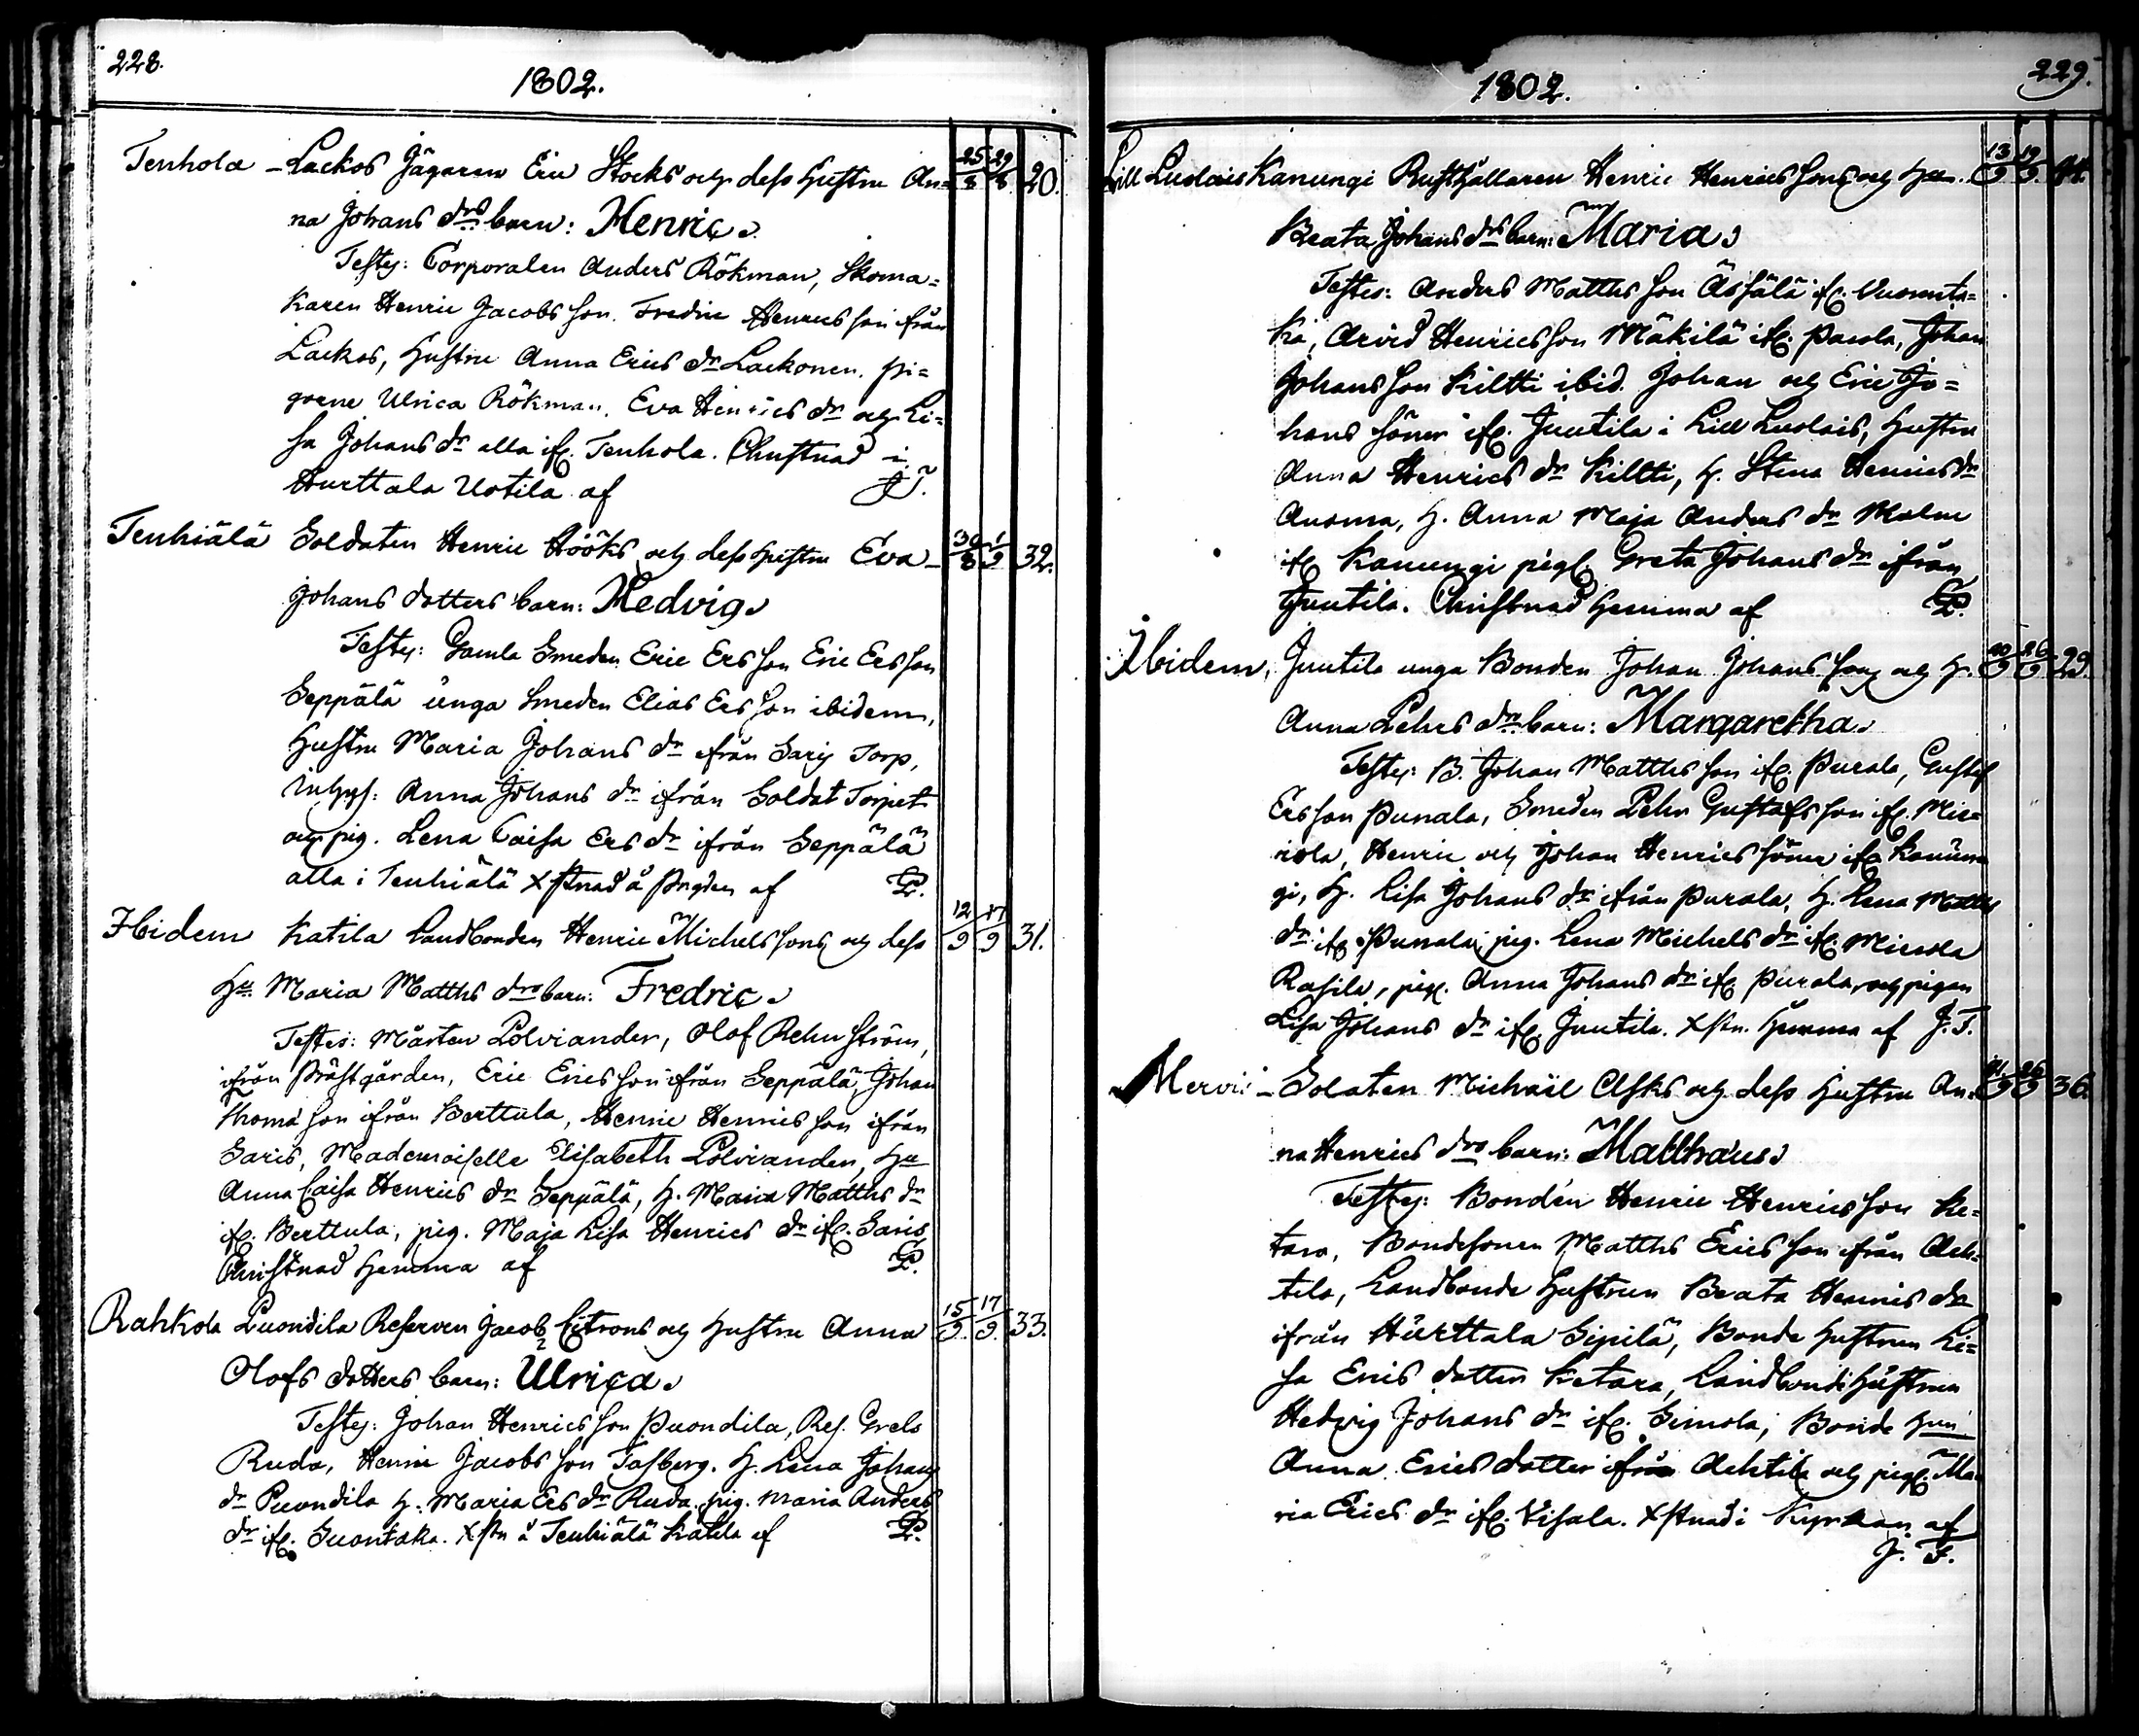 228.
1802.
Tenhola - Lackos Jägaren Eric Stocks och dess hustru An= 25/8 29/8 20.
na Johans drs barn: Henric.
Testes: Corporalen Anders Rökman, Skoma=
karen Henric Jacobs son. Fredric Henrics son ifrån
Lackos, hustru Anna Erics dr Lackonen. pi=
gorne Ulrica Rökman. Eva Henrics dr och Li=
sa Johans dr alla ifr. Tenhola. Christnad i
Hurttala Uotila af J.T.
Tenhiälä Soldaten Henric Hööks och dess hustru Eva 30/8 1/9 32.
Johans dotters barn: Hedvig
Testes: Gamla Smeden Eric Ersson Eric Ersson
Seppälä unga Smeden Elias Ersson ibidem,
hustru Maria Johans dr ifrån Saris Torp,
inhys: Anna Johans dr ifrån Soldat Torpet
och pig. Lena Caisa Ers dr ifrån Seppälä
alla i Tenhiälä Xstnad å af
Ibidem Katila Landbonden Henric Michelssons och dess 12/9 17/9 31.
Hu. Maria Matths drs barn: Fredric
Testes: Mårten Polviander, Olof Rehnström,
ifrån Prästgården, Eric Erics son ifrån Seppälä, Johan
Thomas son ifrån Berttula, Henric Henrics son ifrån
Saris, Mademoiselle Elisabeth Polviander, Hu
Anna Caisa Henrics dr Seppälä, H. Maria Matths dr
ifr. Berttula, pig. Maja Lisa Henrics dr ifr. Saris
Christnad hemma af
Rahkola Puondila Reserven Jacob Citrons och hustru Anna 15/9 17/9 33.
Olofs dotters barn: Ulrica
Testes: Johan Henrics son Puondila, Res. Grels
Ruda, Henric Jacobs son Tasberg. H. Lena Johans
dr Puondila H. Maria Ers dr Ruda. pig. Maria Anders
dr ifr. Suontaka. Xstn å Tenhiälä Katila af
1802.
229.
Lill Ludois Kanungi Rusthållaren Henric Henrics sons och Hu. 13/9 19/9
Beata Johans drs barn: Maria
Testes: Anders Matths son Ässälä ifr. Vuorenta=
ka, Arvid Henrics son Mäkilä ifr. Pavola, Johan
Johans son Kiltti ibid. Johan och Eric Jo=
hans söner ifr. Juutila i Lill Ludois, hustru
Anna Henrics dr Killti, H. Stina Henrics dr
Anoma, H. Anna Maja Anders dr Malm
ifr Kanungi pig. Greta Johans dr ifrån
Juutila. Christnad hemma af
Ibidem, Juutila unga Bonden Johan Johans sons och H. 20/9 26/9 29.
Anna Pehrs drs barn: Margaretha
Testes: B. Johan Matths son ifr. Purala, Gustaf
Ersson Punala, Smeden Pehr Gustafsson ifr. Mie=
, Henric och Johan Henrics söner ifr Kanun=
gi, H. Lisa Johans dr ifrån Purala, H. Lena Matths
dr ifr Punala, pig. Lena Michels dr ifr.
Rasila, pig. Anna Johans dr ifr Purala, och pigan
Lisa Johans dr ifr Juutila. Xstn. hemma af J.T.
Mervis - Solaten Michaël Asks och dess hustru An= 21/9 26/9 36.
na Henrics drs barn: Matthaeus
Testes: Bonden Henric Henrics son Ke=
tara, Bondesonen Matths Erics son ifrån Ach=
tila, Landbonde hustrun Beata Henrics dr
ifrån Hurttala Sipilä, Bonde hustrun Li=
sa Erics dotter Ketara, Landbonde hustrun
Hedvig Johans dr ifr. Simola, Bonde Hun.
Anna Erics dotter ifrån Achtila och pig. Ma
ria Erics dr ifr. Visala. Xstnad i Kyrkan af
J. T.